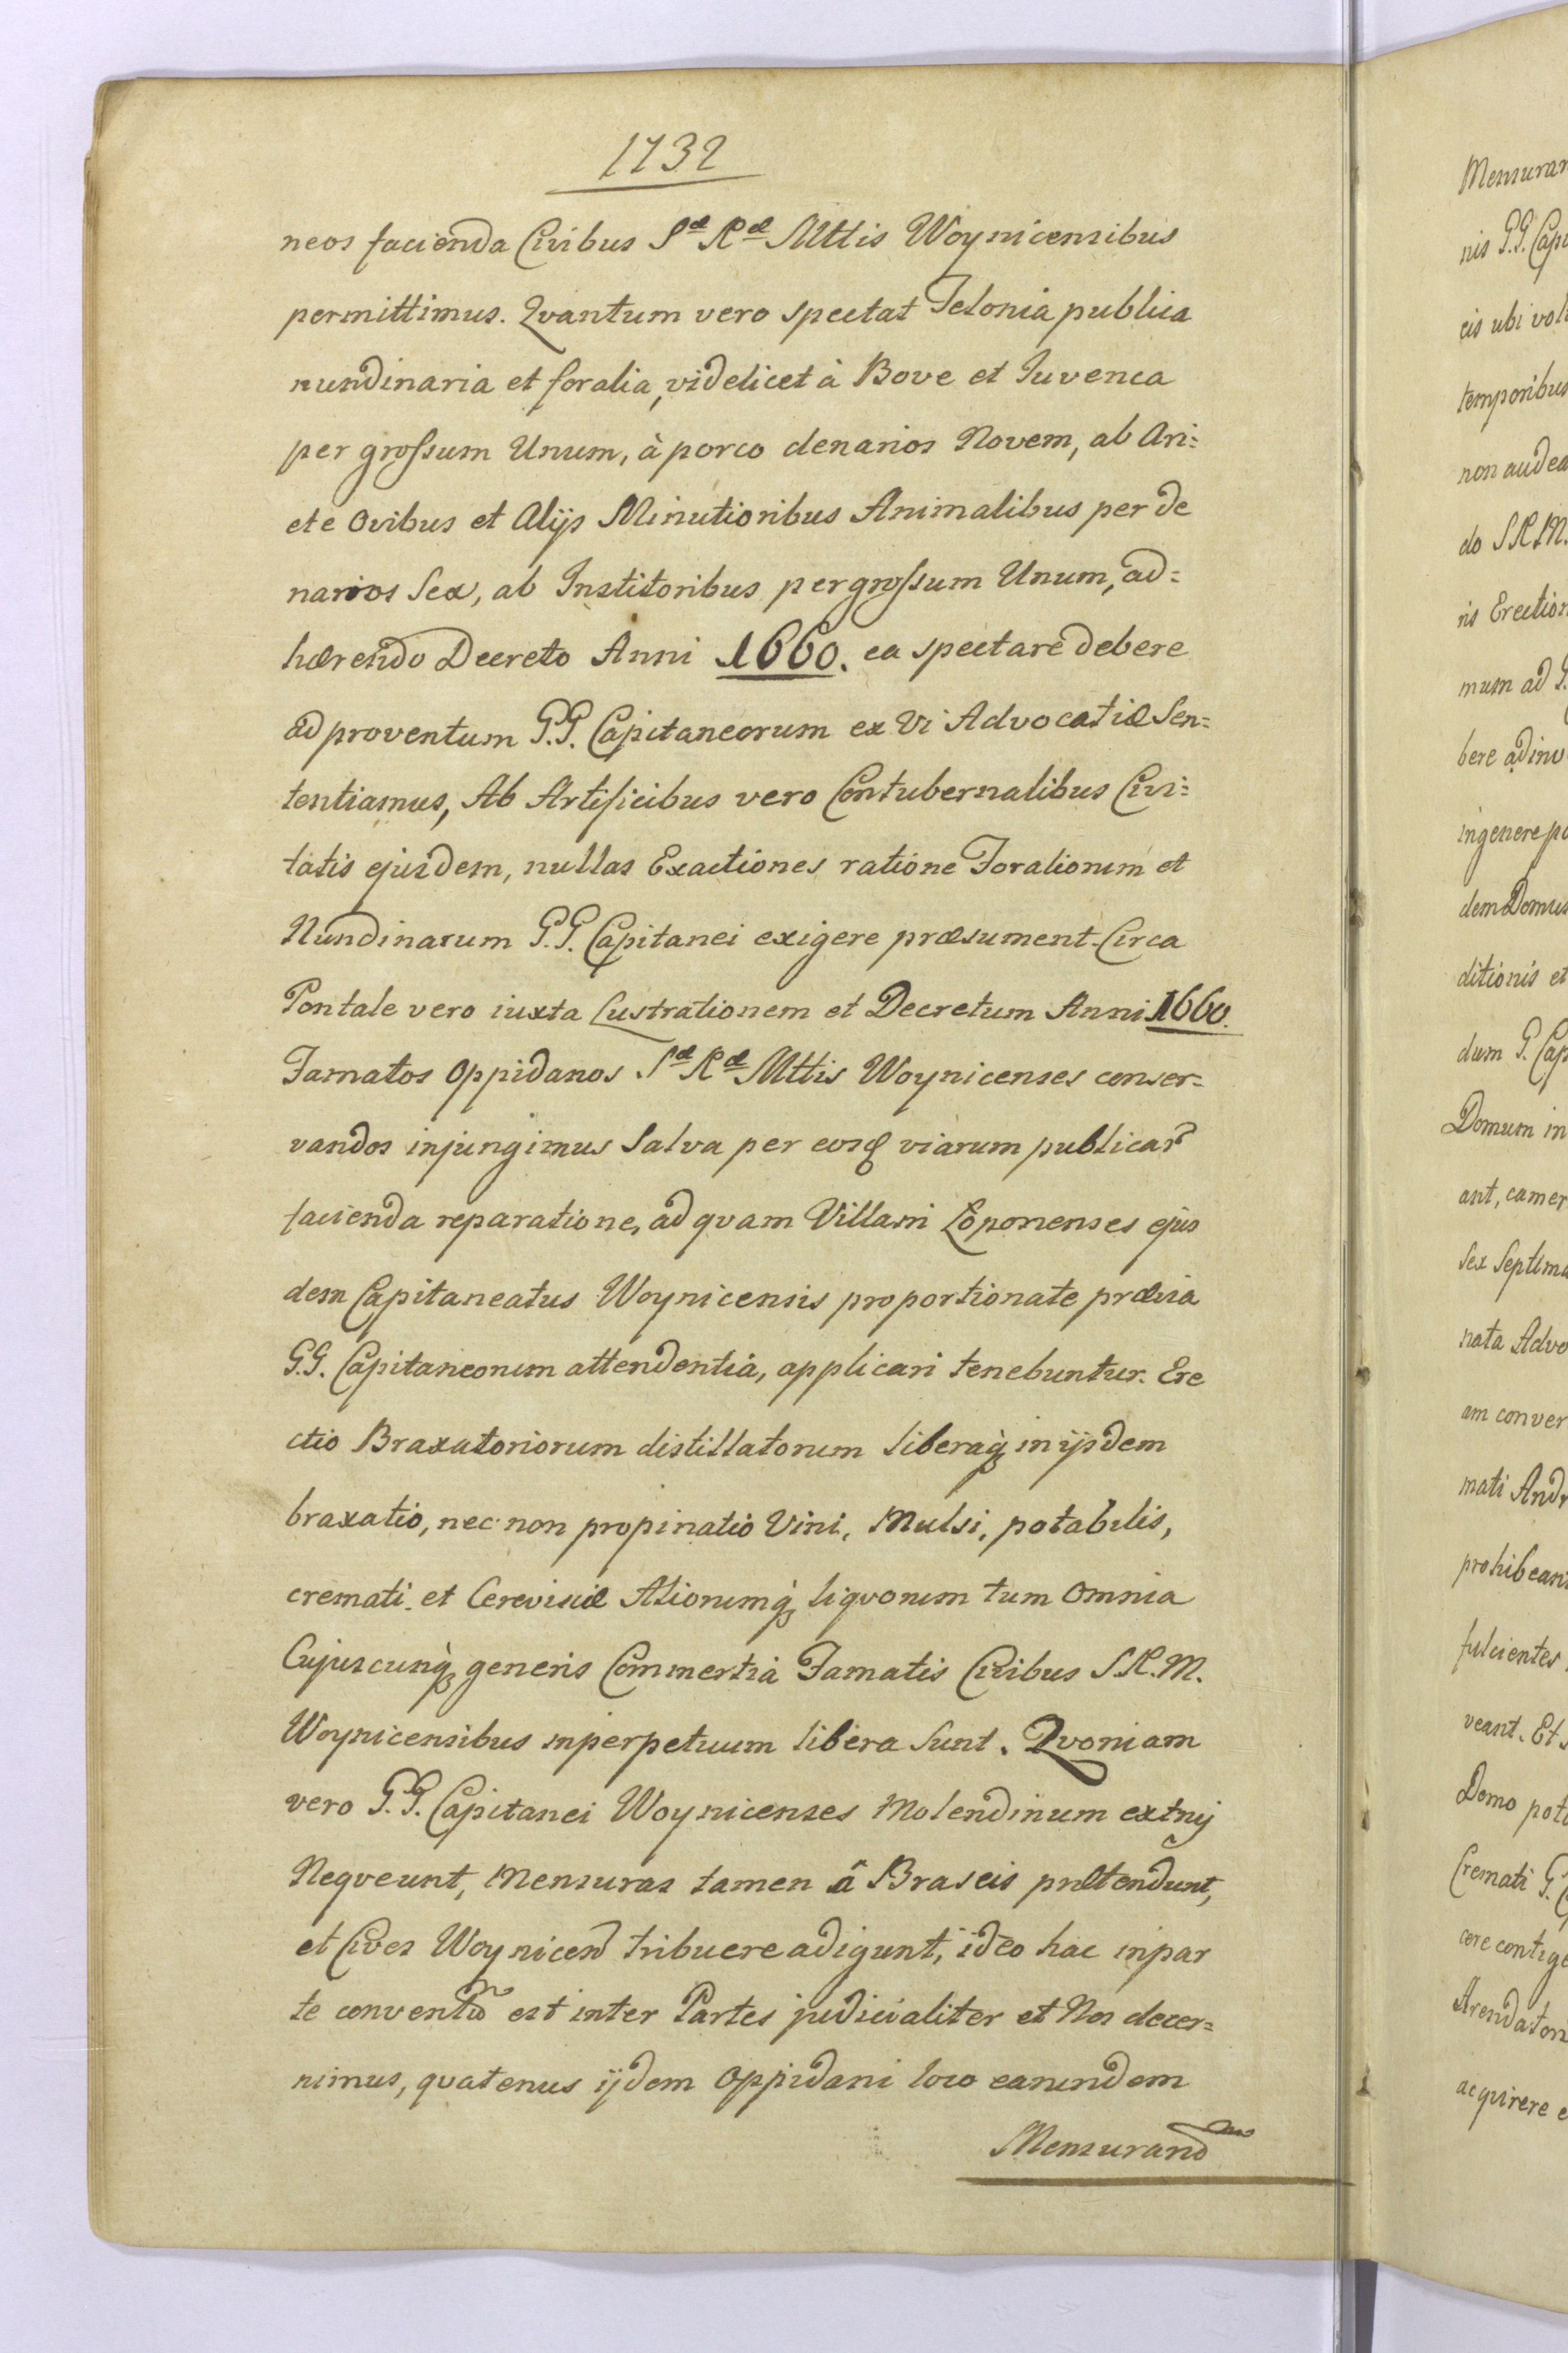 1732
neos facienda Civibus Sæ Ræ Mttis Woynicensibus
permittimus. Qvantum vero spectat Telonia publica
nundinaria et foralia, videlicet à Bove et Iuvenca
per grossum Unum, à porco denarios Novem, ab Ari=
ete Ovibus et Alijs Minutioribus Animalibus per de
narios Sex, ab Institoribus per grossum Unum, ad=
hærendo Decreto Anni 1660. ea spectare debere
ad proventum G.G. Capitaneorum ex Vi Advocatiæ Sen=
tentiamus, Ab Artificibus vero Contubernalibus Civi=
tatis ejusdem, nullas Exactiones ratione Foraliorum et
Nundinarum G.G. Capitanei exigere præsument. Circa
Pontale vero iuxta Lustrationem et Decretum Anni 1660.
Famatos Oppidanos Sæ Ræ Mttis Woynicenses conser=
vandos injungimus Salva per eosq viarum publicar
facienda reparatione, ad qvam Villani Łoponenses ejus
dem Capitaneatus Woynicensis proportionate prævia
G.G. Capitaneorum attendentia, applicari tenebuntur. Ere
ctio Braxatoriorum distillatorum liberaq in ijsdem
braxatio, nec non propinatio Vini, Mulsi, potabilis,
cremati et Cerevisiæ Aliorumq liqvorum tum Omnia
Cujuscunq generis Commertia Famatis Civibus S.R.M.
Woynicensibus in perpetuum libera Sunt. Qvoniam
vero G.G. Capitanei Woynicenses Molendinum extruj
Neqveunt, Mensuras tamen â Braseis prætendunt,
et Cives Woynicen tribuere adigunt, ideo hac in par
te conventũ est inter Partes judicialiter et Nos decer=
nimus, qvatenus ijdem Oppidani loco earundem
Mensurand
Mensurar
nis G.G. Capi
eis ubi vol
temporibus
non audea
do S.R.M.
ris Erection
mum ad G
bere adinv
in genere po
dem Domus
ditionis et
dum G. Cap
Domum in
ant, camer
Sex Septima
nata Advo
am conver
mati Andr
prohibean
fulcientes
veant. Et
Domo pota
Cremati G. C
core contige
Arendator
acqvirere e